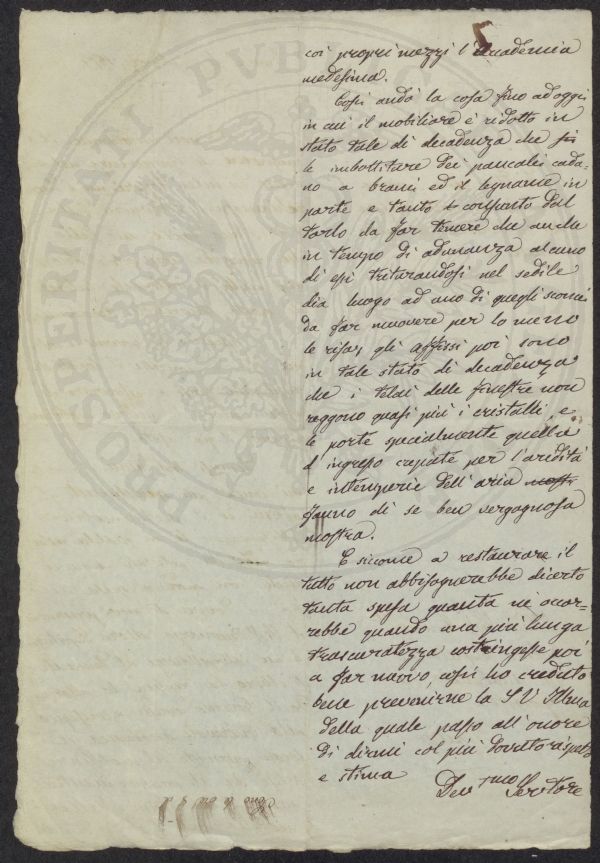 5
coi proprj mezzi l'accademia
medesima.
Così andò la cosa fino ad oggi
in cui il mobiliare è ridotto in
stato tale di decadenza che
le imbottiture dei pancali cada=
no a brani ed il legname in
parte e tanto consunto dal
tarlo da far temere che anche
in tempo di adunanza alcuno
di essi triturandosi nel sedile
dia luogo ad uno di quegli sconci
da far muovere per lo meno
le risa, gli affissi poi sono
in tale stato di decadenza
che i telai delle finestre non
reggono quasi più i cristalli, e
le porte specialmente quella
d'ingresso crepate per l'aridità
e intemperie dell'aria
fanno di se ben vergognosa
mostra.
E siccome a restaurare il
tutto non abbisognerebbe dicerto
tanta spesa quanta nè occor=
rebbe quando una più lunga
trascuratezza costringesse poi
a far nuovo, così ho creduto
bene prevenirne la S V Illma
della quale passo all'onore
di dirmi col più dovuto rispetto
e stima
Dev.tmo Servitore
PROSPERITATI PVBLICAE